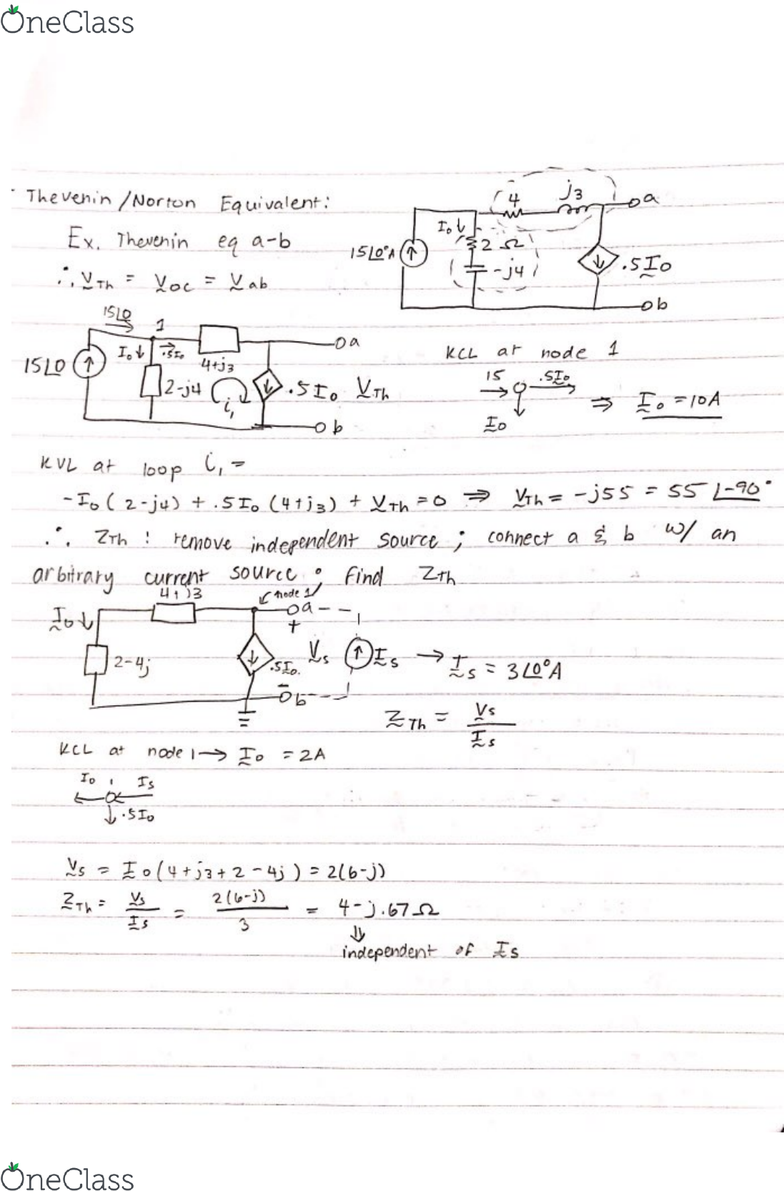 OneClass
Thevenin/Norton Equivalent:
4 j3 a
Ex. Thevenin eq a-b
Io↓ 2Ω
15∠0°A ↑ -j4 ↓ .5Io
∴ VTh = Voc = Vab
b
15∠0
1 a
KCL at node 1
15∠0 ↑ Io↓ .5Io 4+j3
2-j4 i1 ↓ .5Io VTh
15 .5Io
Io ⇒ Io = 10A
b
KVL at loop i1 =
-Io(2-j4) + .5Io(4+j3) + VTh = 0 ⇒ VTh = -j55 = 55∠-90°
∴ ZTh : remove independent source ; connect a & b w/ an
arbitrary current source ; find ZTh
4+j3 node 1 a
Io↓ +
2-4j ↓ .5Io. Vs ↑ Is → Is = 3∠0°A
- b
ZTh = Vs/Is
KCL at node 1 → Io = 2A
Io 1 Is
↓ .5Io
Vs = Io(4+j3+2-4j) = 2(6-j)
ZTh = Vs/Is = 2(6-j)/3 = 4-j.67Ω
⇓
independent of Is
OneClass